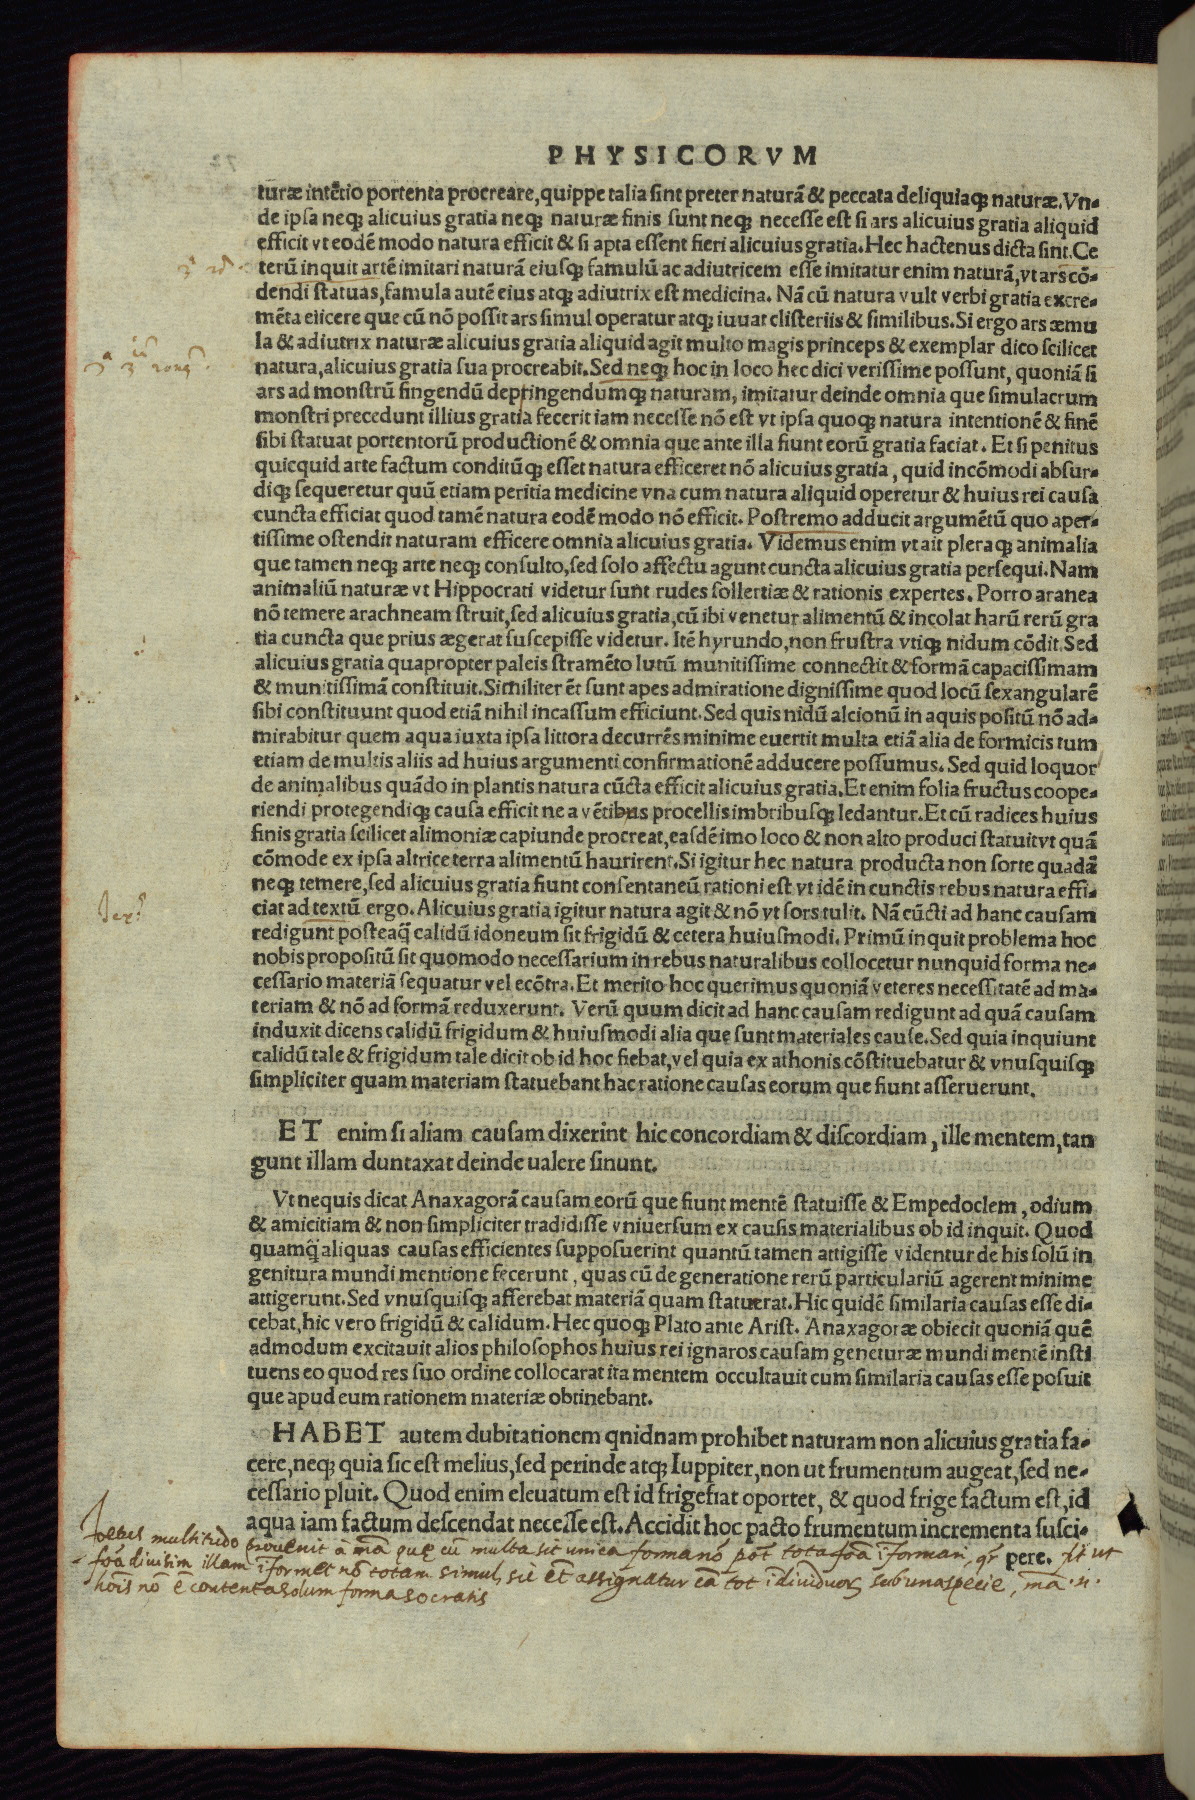 PHYSICORVM
turæ intẽtio portenta procreare, quippe talia sint preter naturã & peccata deliquiaq; naturæ. Vn-
de ipsa neq; alicuius gratia neq; naturæ finis sunt neq; necesse est si ars alicuius gratia aliquid
efficit vt eodẽ modo natura efficit & si apta essent fieri alicuius gratia. Hec hactenus dicta sint. Ce
terũ inquit artẽ imitari naturã eiusq; famulũ ac adiutricem esse imitatur enim naturã, vt ars cõ-
dendi statuas, famula autẽ eius atq; adiutrix est medicina. Nã cũ natura vult verbi gratia excre-
mẽta eiicere que cũ nõ possit ars simul operatur atq; iuuat clisteriis & similibus. Si ergo ars æmu
la & adiutrix naturæ alicuius gratia aliquid agit multo magis princeps & exemplar dico scilicet
natura, alicuius gratia sua procreabit. Sed neq; hoc in loco hec dici verissime possunt, quoniã si
ars ad monstrũ fingendũ depingendumq; naturam, imitatur deinde omnia que simulacrum
monstri precedunt illius gratia fecerit iam necesse nõ est vt ipsa quoq; natura intentionẽ & finẽ
sibi statuat portentorũ productionẽ & omnia que ante illa fiunt eorũ gratia faciat. Et si penitus
quicquid arte factum conditũq; esset natura efficeret nõ alicuius gratia, quid incõmodi absur-
diq; sequeretur quũ etiam peritia medicine vna cum natura aliquid operetur & huius rei causa
cuncta efficiat quod tamẽ natura eodẽ modo nõ efficit. Postremo adducit argumẽtũ quo aper-
tissime ostendit naturam efficere omnia alicuius gratia. Videmus enim vt ait pleraq; animalia
que tamen neq; arte neq; consulto, sed solo affectu agunt cuncta alicuius gratia persequi. Nam
animaliũ naturæ vt Hippocrati videtur sunt rudes sollertiæ & rationis expertes. Porro aranea
nõ temere arachneam struit, sed alicuius gratia, cũ ibi venetur alimentũ & incolat harũ rerũ gra
tia cuncta que prius ægerat suscepisse videtur. Itẽ hyrundo, non frustra vtiq; nidum cõdit. Sed
alicuius gratia quapropter paleis stramẽto lutũ munitissime connectit & formã capacissimam
& munitissimã constituit. Similiter ẽt sunt apes admiratione dignissime quod locũ sexangularẽ
sibi constituunt quod etiã nihil incassum efficiunt. Sed quis nidũ alcionũ in aquis positũ nõ ad-
mirabitur quem aqua iuxta ipsa littora decurrẽs minime euertit multa etiã alia de formicis tum
etiam de multis aliis ad huius argumenti confirmationẽ adducere possumus. Sed quid loquor
de animalibus quãdo in plantis natura cũcta efficit alicuius gratia. Et enim folia fructus coope-
riendi protegendiq; causa efficit ne a vẽtibus procellis imbribusq; ledantur. Et cũ radices huius
finis gratia scilicet alimoniæ capiunde procreat, easdẽ imo loco & non alto produci statuit vt quã
cõmode ex ipsa altrice terra alimentũ haurirent. Si igitur hec natura producta non sorte quadã
neq; temere, sed alicuius gratia fiunt consentaneũ rationi est vt idẽ in cunctis rebus natura effi-
ciat ad textũ ergo. Alicuius gratia igitur natura agit & nõ vt sors tulit. Nã cũcti ad hanc causam
redigunt posteaq̃ calidũ idoneum sit frigidũ & cetera huiusmodi. Primũ inquit problema hoc
nobis propositũ sit quomodo necessarium in rebus naturalibus collocetur nunquid forma ne-
cessario materiã sequatur vel ecõtra. Et merito hoc querimus quoniã veteres necessitatẽ ad ma-
teriam & nõ ad formã reduxerunt. Verũ quum dicit ad hanc causam redigunt ad quã causam
induxit dicens calidũ frigidum & huiusmodi alia que sunt materiales cause. Sed quia inquiunt
calidũ tale & frigidum tale dicit ob id hoc fiebat, vel quia ex athonis cõstituebatur & vnusquisq;
simpliciter quam materiam statuebant hac ratione causas eorum que fiunt asseruerunt.
ET enim si aliam causam dixerint hic concordiam & discordiam, ille mentem, tan
gunt illam duntaxat deinde ualere sinunt.
Vt nequis dicat Anaxagorã causam eorũ que fiunt mentẽ statuisse & Empedoclem, odium
& amicitiam & non simpliciter tradidisse vniuersum ex causis materialibus ob id inquit. Quod
quamq̃ aliquas causas efficientes supposuerint quantũ tamen attigisse videntur de his solũ in
genitura mundi mentione fecerunt, quas cũ de generatione rerũ particulariũ agerent minime
attigerunt. Sed vnusquisq; afferebat materiã quam statuerat. Hic quidẽ similaria causas esse di-
cebat, hic vero frigidũ & calidum. Hec quoq; Plato ante Arist. Anaxagoræ obiecit quoniã quẽ
admodum excitauit alios philosophos huius rei ignaros causam geneturæ mundi mentẽ insti
tuens eo quod res suo ordine collocarat ita mentem occultauit cum similaria causas esse posuit
que apud eum rationem materiæ obtinebant.
HABET autem dubitationem qnidnam prohibet naturam non alicuius gratia fa-
cere, neq; quia sic est melius, sed perinde atq; Iuppiter, non ut frumentum augeat, sed ne-
cessario pluit. Quod enim eleuatum est id frigefiat oportet, & quod frige factum est, id
aqua iam factum descendat necesse est. Accidit hoc pacto frumentum incrementa susci-
pere.
multitudo prouenit a mã que cũ multa sit unica forma nõ põt tota foã iformari, qr fit ut
foã diuisim illam iformet nõ totam simul, sic ẽt assignatur cã tot indiuiduor sub una specie, mã .n.
hoĩs nõ ẽ contenta solum forma socratis